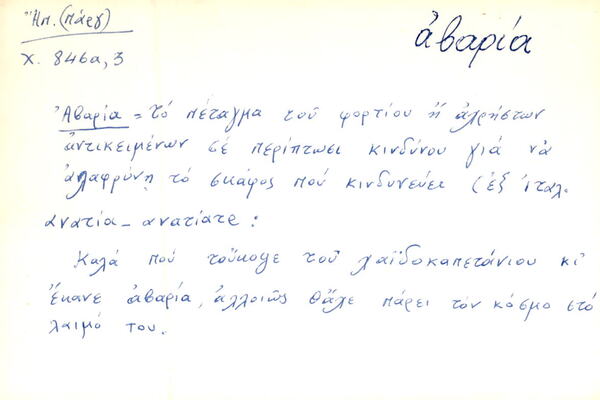 Ἤπ. (Πάργ)
χ. 846α, 3
ἀβαρία
Ἀβαρία = τό πέταγμα τοῦ φορτίου ἤ ἀχρήστων
ἀντικειμένων σέ περίπτωσι κινδύνου γιά νὰ
ἀλαφρύνῃ τό σκάφος πού κινδυνεύει (ἐξ ἰταλ.
ανατία - ανατίατε:
Καλά πού τοὔκοψε τοῦ χαϊδοκαπετάνιου κι'
ἔκανε ἀβαρία, ἀλλοιῶς θἄχε πάρει τόν κόσμο στό
λαιμό του.